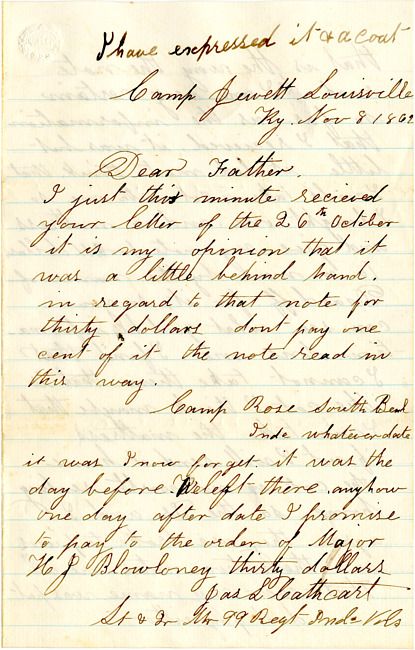 I have expressed it & a coat
Camp Jewett Louisville
Ky. Nov 8 1862
Dear Father.
I just this minute recieved
your letter of the 26th October
it is my opinion that it
was a little behind hand.
in regard to that note for
thirty dollars dont pay one
cent of it the note read in
this way.
Camp Rose South Bend
Inde whatever date
it was I now forget. it was the
day before We left there. anyhow
one day after date I promise
to pay to the order of Major
H J Blowloney thirty dollars
Jas L Cathcart
Lt & Qr Mr 99 Regt Inda Vols